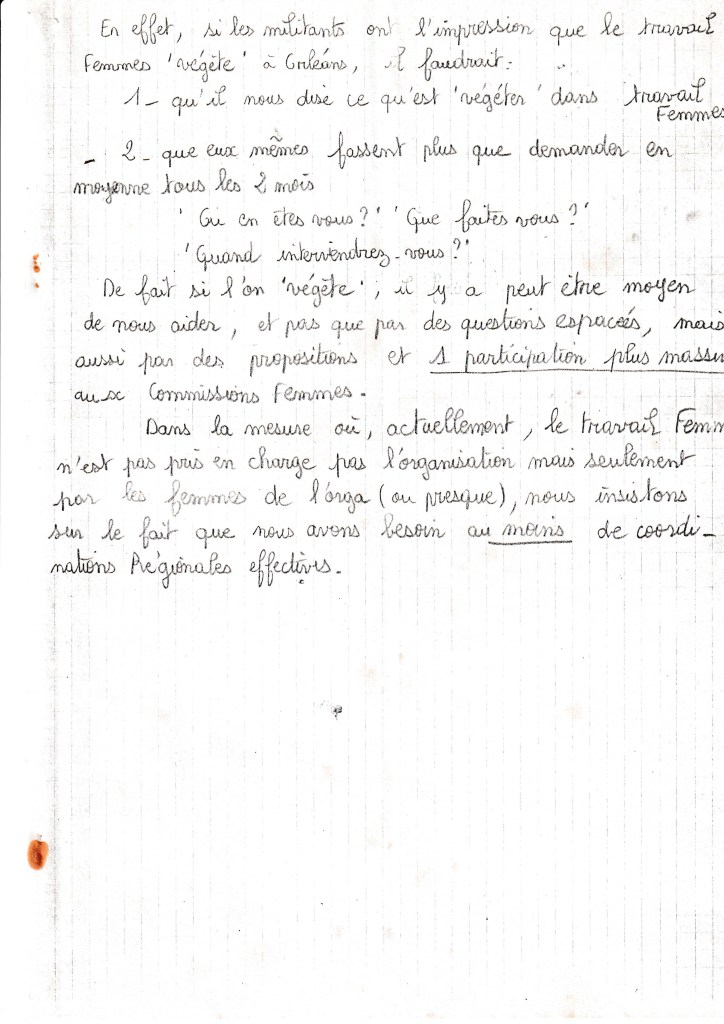 En effet, si les militants ont l'impression que le travail
Femmes 'végète' à Orléans, il faudrait :
1 - qu'il nous dise ce qu'est 'végéter' dans travail
Femmes
- 2 - que eux mêmes fassent plus que demander en
moyenne tous les 2 mois
'Où en êtes vous ?' 'Que faites vous ?'
'Quand interviendrez-vous ?'
De fait si l'on 'végète', il y a peut être moyen
de nous aider, et pas que par des questions espacées, mais
aussi par des propositions et 1 participation plus massi
aux Commissions Femmes.
Dans la mesure où, actuellement, le travail Femm
n'est pas pris en charge pas l'organisation mais seulement
par les femmes de l'orga (ou presque), nous insistons
sur le fait que nous avons besoin au moins de coordi-
nations Régionales effectives.